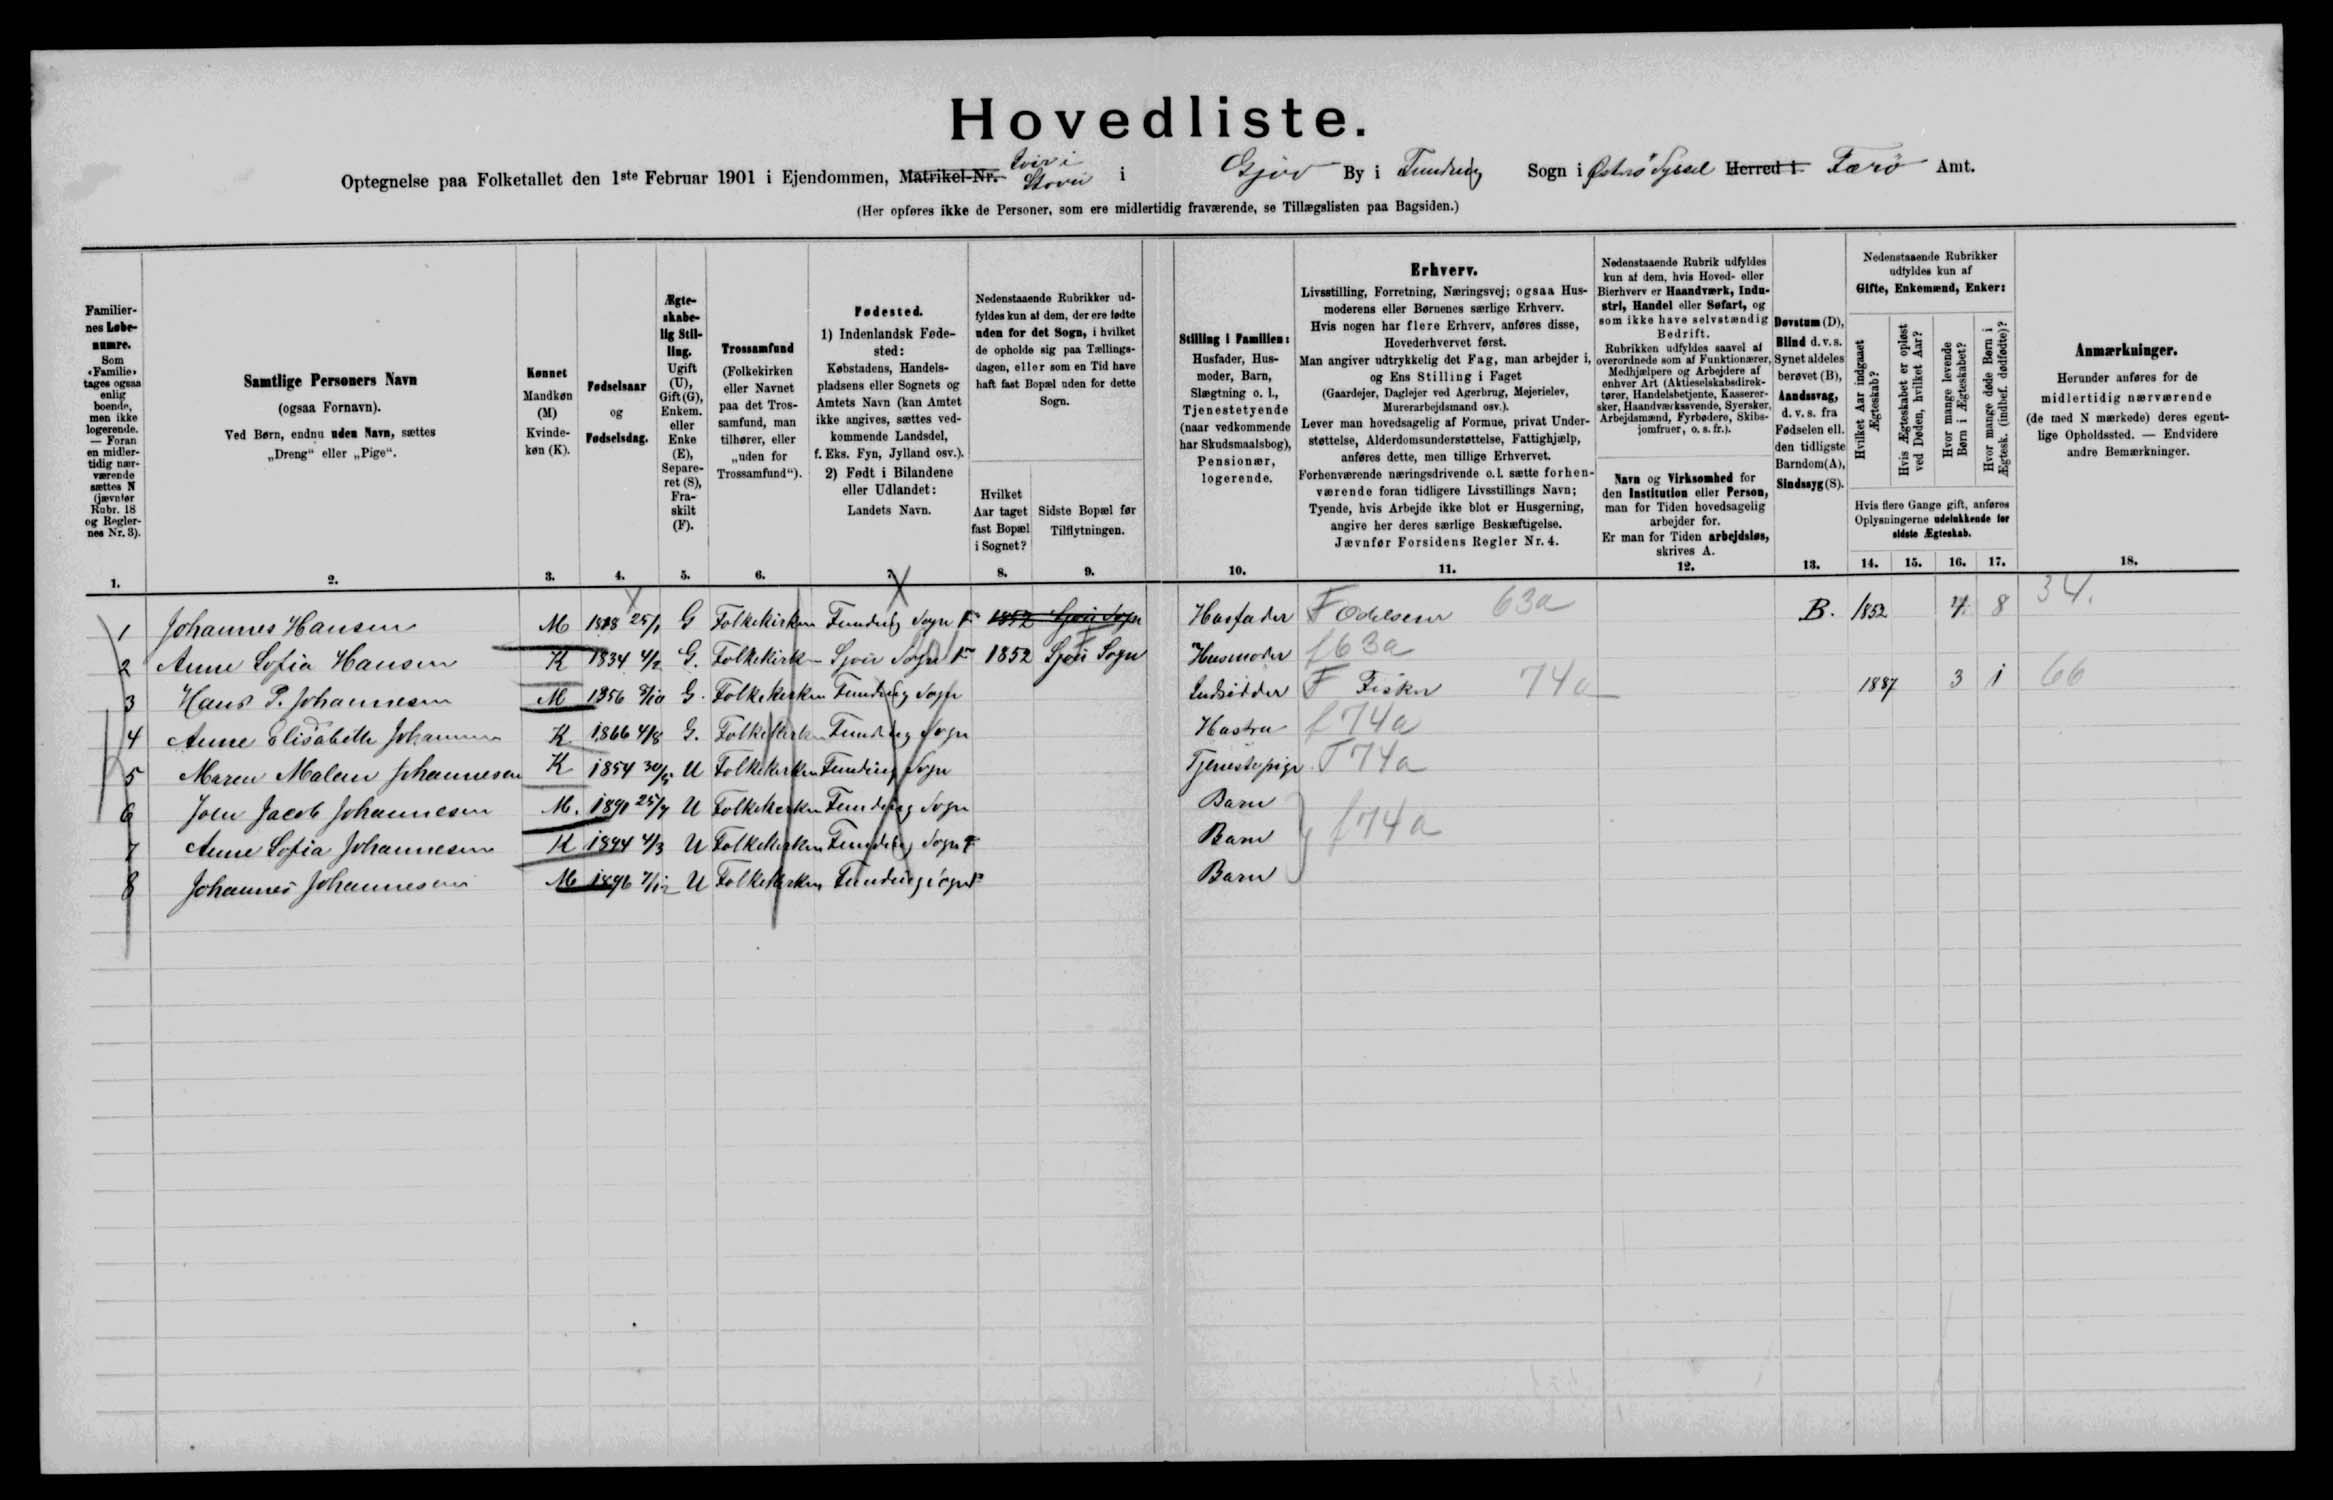 Hovedliste.
Optegnelse paa Folketallet den 1ste Februar 1901 i Ejendommen, Matrikel-Nr. i Gjov By i Funding Sogn i Østrø Syssel Herred i Færø Amt.
(Her opføres ikke de Personer, som ere midlertidig fraværende, se Tillægslisten paa Bagsiden.)
Familier-
nes Løbe-
numre.
Som
«Familie»
tages ogsaa
enlig
boende,
men ikke
logerende.
— Foran
en midler-
tidig nær-
værende
sættes N
(jævnfør
Rubr. 18
og Regler-
nes Nr. 3).
1.
Samtlige Personers Navn
(ogsaa Fornavn).
Ved Børn, endnu uden Navn, sættes
„Dreng“ eller „Pige“.
2.
Kønnet
Mandkøn
(M)
Kvinde-
køn (K).
3.
Fødselsaar
og
Fødselsdag.
4.
Ægte-
skabe-
lig Stil-
ling.
Ugift
(U),
Gift (G),
Enkem.
eller
Enke
(E),
Separe-
ret (S),
Fra-
skilt
(F).
5.
Trossamfund
(Folkekirken
eller Navnet
paa det Tros-
samfund, man
tilhører, eller
„uden for
Trossamfund“).
6.
Fødested.
1) IndenlandskFøde-
sted:
Købstadens, Handels-
pladsens eller Sognets og
Amtets Navn (kan Amtet
ikke angives, sættes ved-
kommende Landsdel,
f. Eks. Fyn, Jylland osv.).
2) Født i Bilandene
eller Udlandet:
Landets Navn.
7.
Nedenstaaende Rubrikker ud-
fyldes kun af dem, der ere fødte
uden for det Sogn, i hvilket
de opholde sig paa Tællings-
dagen, eller som en Tid have
haft fast Bopæl uden for dette
Sogn.
Hvilket
Aar taget
fast Bopæl
i Sognet?
8.
Sidste Bopæl før
Tilflytningen.
9.
Stilling i Familien:
Husfader, Hus-
moder, Barn,
Slægtning o. l.,
Tjenestetyende
(naar vedkommende
har Skudsmaalsbog),
Pensionær,
logerende.
10.
Erhverv.
Livsstilling, Forretning, Næringsvej; ogsaa Hus-
moderens eller Børnenes særlige Erhverv.
Hvis nogen har flere Erhverv, anføres disse,
Hovederhvervet først.
Man angiver udtrykkelig det Fag, man arbejder i,
og Ens Stilling i Faget
(Gaardejer, Daglejer ved Agerbrug, Mejerielev,
Murerarbejdsmand osv.).
Lever man hovedsagelig af Formue, privat Under-
støttelse, Alderdomsunderstøttelse, Fattighjælp,
anføres dette, men tillige Erhvervet.
Forhenværende næringsdrivende o. l. sætte forhen-
værende foran tidligere Livsstillings Navn;
Tyende, hvis Arbejde ikke blot er Husgerning,
angive her deres særlige Beskæftigelse.
Jævnfør Forsidens Regler Nr. 4.
11.
Nedenstaaende Rubrik udfyldes
kun af dem, hvis Hoved- eller
Bierhverv er Haandværk, Indu-
stri, Handel eller Søfart, og
som ikke have selvstændig
Bedrift.
Rubrikken udfyldes saavel af
overordnede som af Funktionærer,
Medhjælpere og Arbejdere af
enhver Art (Aktieselskabsdirek-
tører, Handelsbetjente, Kasserer-
sker, Haandværkssvende, Syersker,
Arbejdsmænd, Fyrbødere, Skibs-
jomfruer, o. s. fr.).
Navn og Virksomhed for
den Institution eller Person,
man for Tiden hovedsagelig
arbejder for.
Er man for Tiden arbejdsløs,
skrives A.
12.
Døvstum (D),
Blind d. v. s.
Synet aldeles
berøvet (B),
Aandssvag,
d. v. s. fra
Fødselen ell.
den tidligste
Barndom (A),
Sindssyg (S).
13.
Nedenstaaende Rubrikker
udfyldes kun af
Gifte, Enkemænd, Enker:
Hvilket Aar indgaaet
Ægteskab?
Hvis Ægteskabet er opløst
ved Døden, hvilket Aar?
Hvor mange levende
Børn i Ægteskabet?
Hvor mange døde Børn i
Ægtesk. (indbef. dødfødte)?
Hvis flere Gange gift, anføres
Oplysningerne udelukkende for
sidste Ægteskab.
14. 15. 16. 17.
Anmærkninger.
Herunder anføres for de
midlertidig nærværende
(de med N mærkede) deres egent-
lige Opholdssted. — Endvidere
andre Bemærkninger.
18.
1 Johannes Hansen M 1828 25/1 G Folkekirken Funding Sogn 1852 Gjov Sogn Husfader F Odelsener 63a B. 1852 4 8 34.
2 Anne Sofia Hansen K 1834 4/2 G. Folkekirk Sogn 1852 Sogn Husmoder f 63a
3 Hans P. Johannesen M 1856 G. Folkekirken Funding Sogn Indsidder F Fisker 74a 1887 3 1 66
4 Anne Elisabeth Johannesen K 1866 4/8 G. Folkekirken Funding Sogn Hustru f 74a
5 Maren Malene Johannesen K 1854 U Folkekirken Funding Sogn Tjenestepige T 74a
6 Joen Jacob Johannesen M. 1890 25/7 U Folkekirken Funding Sogn Barn
7 Anne Sofia Johannesen K 1894 4/3 U Folkekirken Funding Sogn Barn f 74a
8 Johannes Johannesen M 1896 7/12 U Folkekirken Funding Sogn Barn